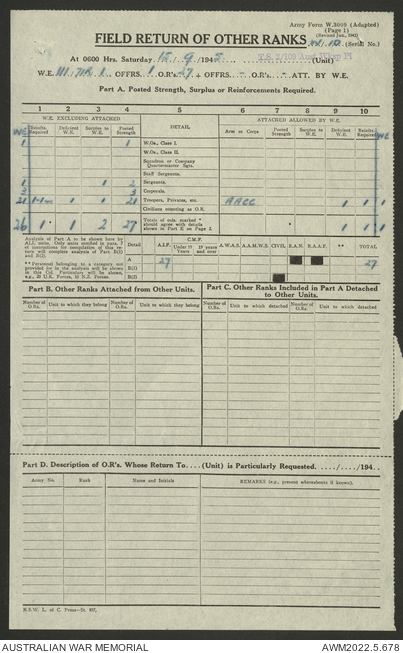 Army Form W.3009 (Adapted)
(Page 1)
(Revised Jan., 1945)
FIELD RETURN OF OTHER RANKS
(Serial No.)
At 0600 Hrs. Saturday 15/9/1945
(Unit)
W.E. III/ OFFRS. 1 O.R's. 27 + OFFRS. - O.R's. - ATT. BY W.E.
Part A. Posted Strength, Surplus or Reinforcements Required.
1 2 3 4 5 6 7 8 9 10
W.E. EXCLUDING ATTACHED
DETAIL
ATTACHED ALLOWED BY W.E.
WE Reinfts. Required Deficient W.E. Surplus to W.E. Posted Strength Arm or Corps Posted Strength Surplus to W.E. Deficient W.E. Reinfts. Required WE
1 1 W.Os., Class I.
W.Os., Class II.
Squadron or Company Quartermaster Sgts.
Staff Sergeants.
1 1 2 Sergeants.
2 3 Corporals.
21 1 21 Troopers, Privates, etc. AACC 1 1 1
Civilians counting as O.R.
26 1 1 2 27 Totals of cols. marked * should agree with details shown in Part E. on Page 2. 1 1 1
Analysis of Part A to be shown here by ALL units. Only units notified in para. 7 of instructions for compilation of this return will complete analysis of Part B(1) and B(2).
** Personnel belonging to a category not provided for in the analysis will be shown in this Col. Particulars will be shown, e.g., 20 U.K. Forces, 10 N.Z. Forces.
Detail A.I.F. C.M.F. Under 19 Years 19 years and over A.W.A.S. A.A.M.W.S. CIVIL R.A.N. R.A.A.F. ** TOTAL
A 27 27
B(1)
B(2)
Part B. Other Ranks Attached from Other Units.
Part C. Other Ranks Included in Part A Detached to Other Units.
Number of O.Rs. Unit to which they belong Number of O.Rs. Unit to which they belong Number of O.Rs. Unit to which detached Number of O.Rs. Unit to which detached
Part D. Description of O.R's. Whose Return To....(Unit) is Particularly Requested. ..../..../194..
Army No. Rank Name and Initials REMARKS (e.g., present whereabouts if known).
N.S.W. L. of C. Press—St. 897.
AUSTRALIAN WAR MEMORIAL AWM2022.5.678